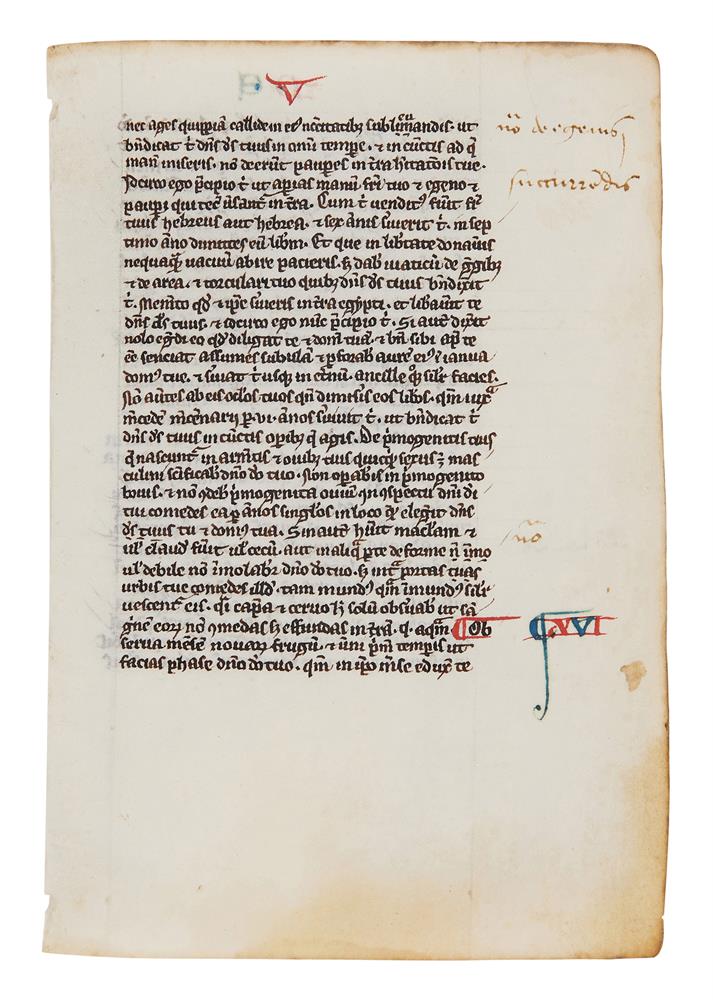 V
nec ages quippiā callide in eiꝰ ncc̄itatibꝫ subleuandis. ut
bn̄dicat t̄ dn̄s dſ tuus in omī tempe. ⁊ in cūctis ad q̄
manū miseris. nō deerūt paupes in t̄ra hitatōis tue.
Idcirco ego p̄cipio t̄ ut apias manū fr̄i tuo ⁊ egeno ⁊
paupi qui tecū ūsant̄ in t̄ra. Cum t̄ venditꝰ fūit fr̄
tuus hebreus aut hebrea. ⁊ sex ānis suierit t̄. in sep
timo āno dimittes eū libm̄. Et quē in libtate donauis
nequaꝗ̄ vacuū abire pacieris. sꝫ dabˢ uiaticū de gͥgibꝫ
⁊ de area. ⁊ torculari tuo quibꝫ dn̄s dſ tuus bn̄dixit
t̄. Memēto qd̄ ⁊ ip̄e suieris in t̄ra egypti. et libauit te
dn̄s dſ tuus. ⁊ idcirco ego nūc p̄cipio t̄. Si aut̄ dixit
nolo eḡdi eo qd̄ diligat te ⁊ domū tuā. ⁊ bn̄ sibi apᵈ te
eē senciat assumes subulā ⁊ pforabˢ aurē eiꝰ ī ianua
domꝰ tue. ⁊ suiat t̄ usꝗ in et̄nū. ancille qͦꝫ silʳ facies.
Nō auertes ab eis oclos tuos qn̄ dimisis eos libos. qm̄ iuxᵃ
m̄cedē m̄cenarij p. vi. ānos suiuit t̄. ut bn̄dicat t̄
dn̄s dſ tuus in cūctis opibꝫ q̄ agis. De p̄mogenitis
q̄ nascunt̄ in armt̄is ⁊ ouibꝫ tuis quicꝗ sexus ꝫ mas
culini sc̄ificabˢ dn̄o do tuo. Non opabis in p̄mogenito
bouis. ⁊ nō t̄debˢ p̄mogenita ouiū. in ꝯspectu dn̄i di
tui comedes ea p ānos singlos in loco qē elegit dn̄s
dſ tuus tu ⁊ domꝰ tua. Sin aut̄ hūit maclam ⁊
ul̓ claudū fūit ul̓ cecū. aut in aliqᵃ pte deforme
ul̓ debile nō īmolabˢ dn̄o do tuo. sꝫ intᵃ portas
urbis tue comedes illd̄. tam mundꝰ qm̄ īmundꝰ silʳ
vescent̄ eis. qͣi capa ⁊ ceruo hͦ solū obsuabˢ ut sā
gͥnē eoꝝ nō ꝯmedas sꝫ effundas in t̄ra. qͣ. aqm̄. Ob
serua mēsē nouaꝝ frugū. ⁊ ūni pͥm̄ tempis ut
facias phase dn̄o do tuo. qm̄ in ip̄o mēse eduxͭ te
nō de egenis
succurrēdis
nō
XVI